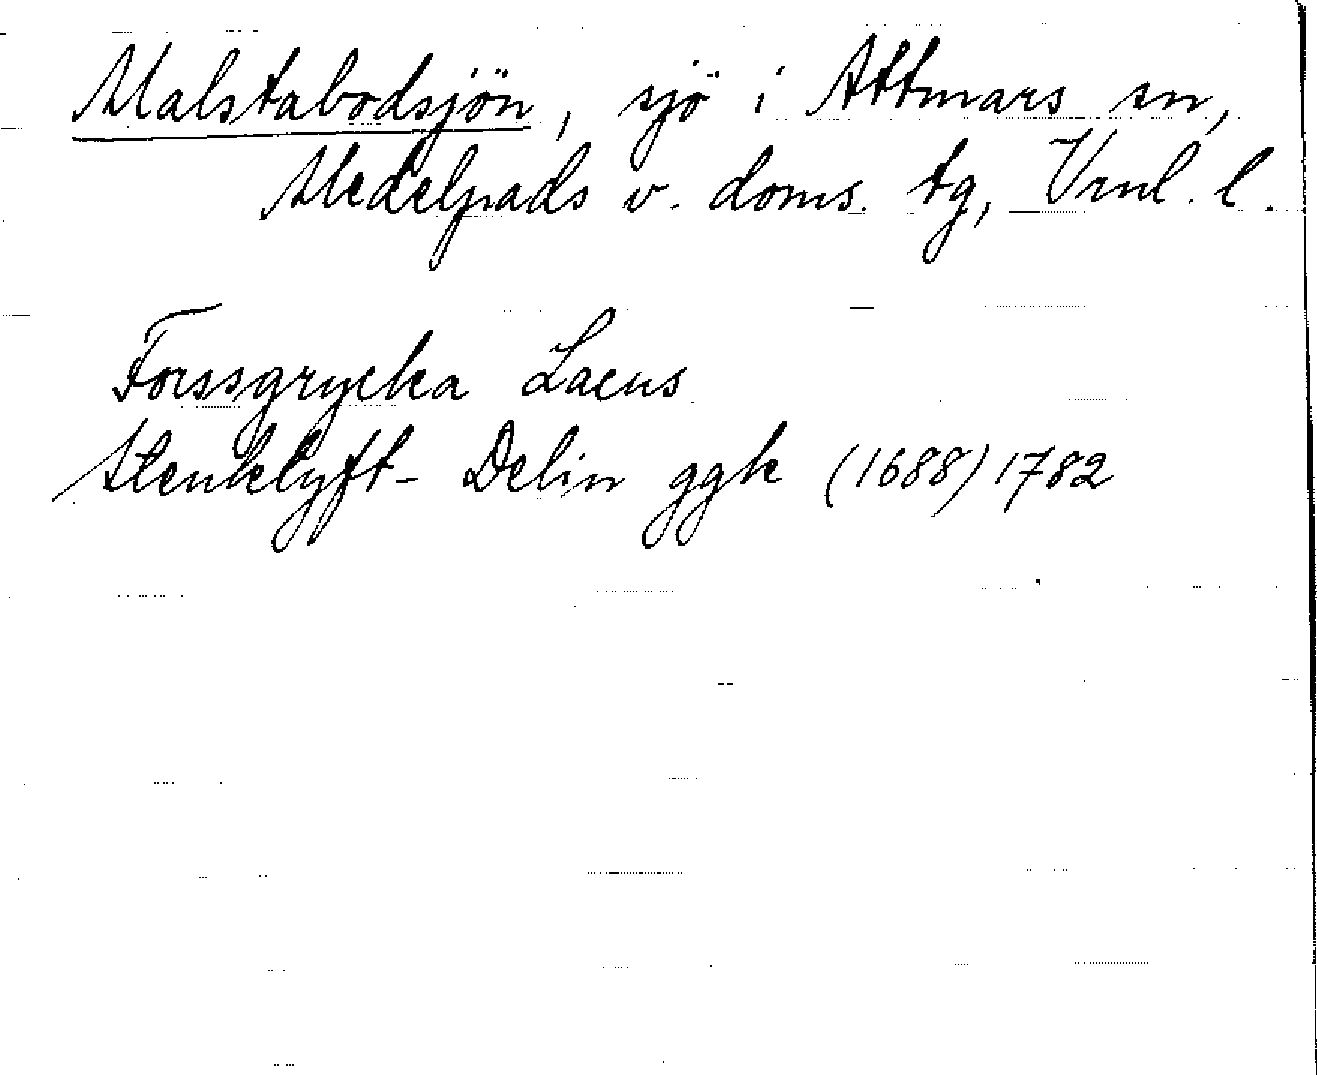 Malstabodsjön, sjö i Attmars sn,
Medelpads v. doms. tg, Vrnl. l.
Forssgrycka Lacus
Stenklyft- Delin ggk (1688) 1782